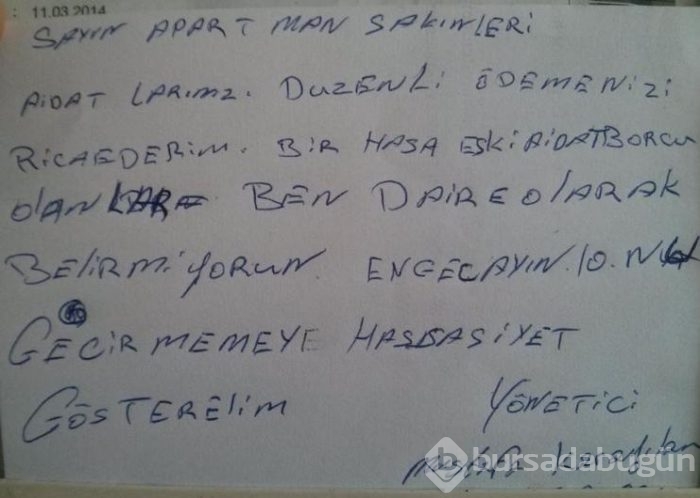 : 11.03.2014
SAYIN APARTMAN SAKINLERİ
AİDAT LARIMZI. DUZENLİ ÖDEMENİZİ
RİCAEDERİM. BİR HASA ESKİ AİDATBORCU
OLAN BEN DAİREOLARAK
BELİRMİYORUN. ENGECAYIN.10.N
GECİRMEMEYE HASSASİYET
GÖSTERELİM YÖNETİCİ
bursadabugün